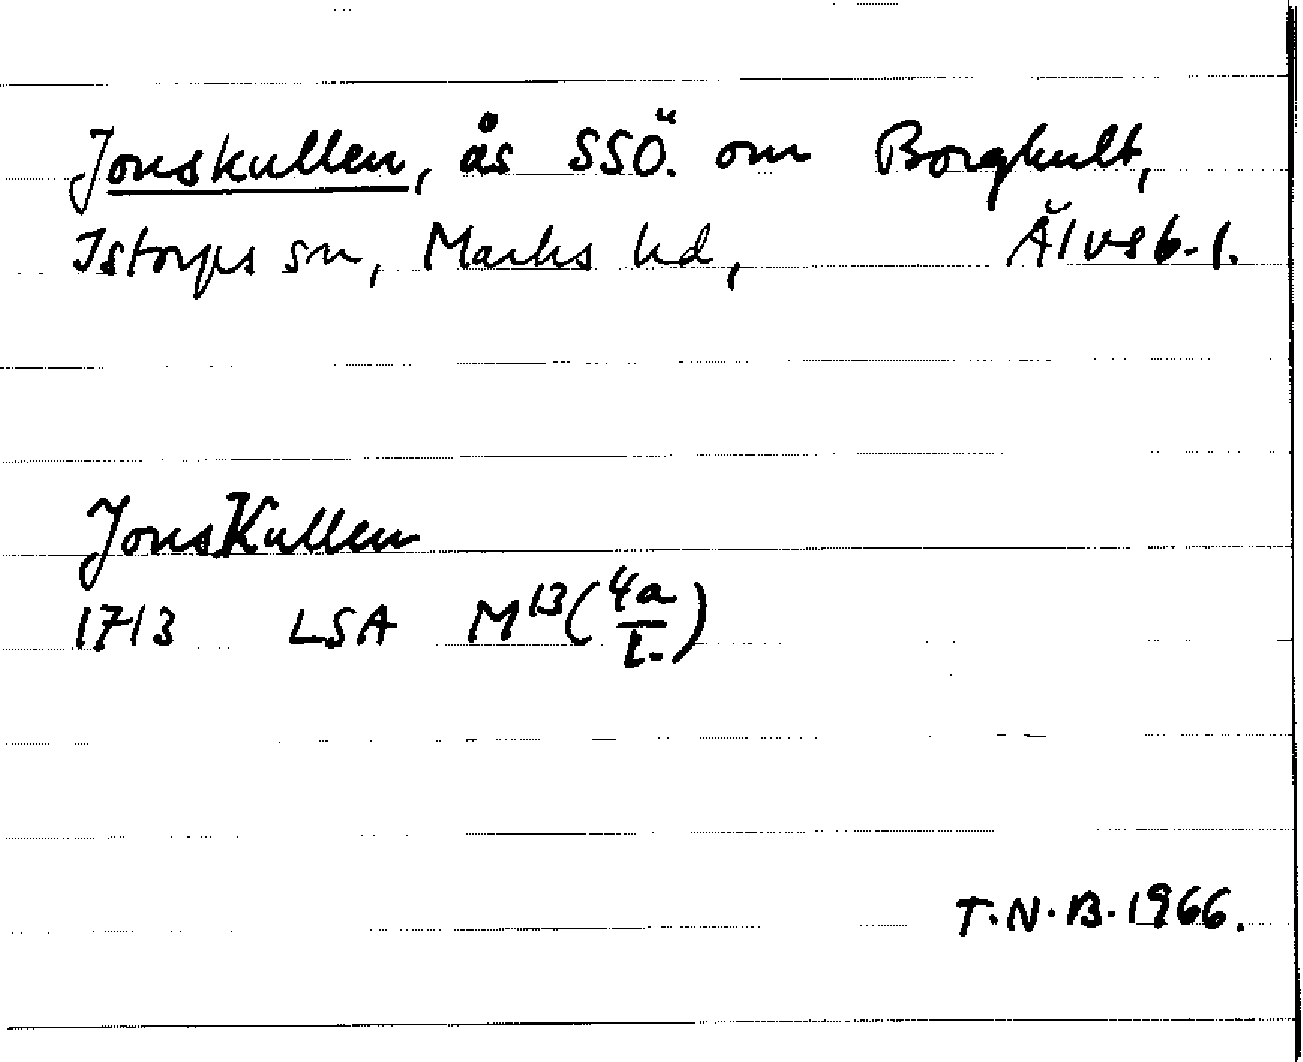 Jonskullen, ås SSÖ. om Borghult,
Istorps sn, Marks hd, Älvsb. l.
JonsKullen
1713 LSA M13(4a/1.)
T.N.B. 1966.